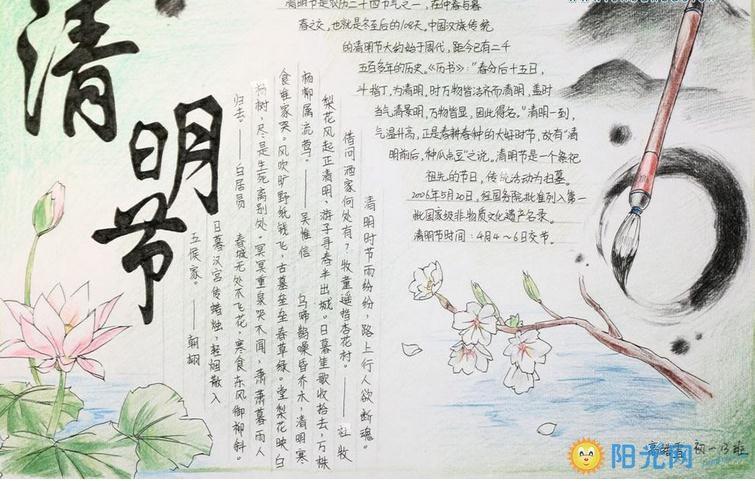 清明节
清明节是农历二十四节气之一，在仲春与暮
春之交，也就是冬至后的108天。中国汉族传统
的清明节大约始于周代，距今已有二千
五百多年的历史。《历书》："春分后十五日，
斗指丁，为清明，时万物皆洁齐而清明，盖时
当气清景明，万物皆显，因此得名。"清明一到，
气温升高，正是春耕春种的大好时节，故有"清
明前后，种瓜点豆"之说。清明节是一个祭祀
祖先的节日，传统活动为扫墓。
2006年5月20日，经国务院批准列入第一
批国家级非物质文化遗产名录。
清明节时间：4月4～6日交节。
清明时节雨纷纷，路上行人欲断魂。
借问酒家何处有？牧童遥指杏花村。——杜牧
梨花风起正清明，游子寻春半出城。日暮笙歌收拾去，万株
杨柳属流莺。——吴惟信 乌啼鹊噪昏乔木，清明寒
食谁家哭。风吹旷野纸钱飞，古墓垒垒春草绿。棠梨花映白
杨树，尽是生死离别处。冥冥重泉哭不闻，萧萧暮雨人
归去。——白居易 春城无处不飞花，寒食东风御柳斜。
日暮汉宫传蜡烛，轻烟散入
五侯家。——
初一13班
阳光网